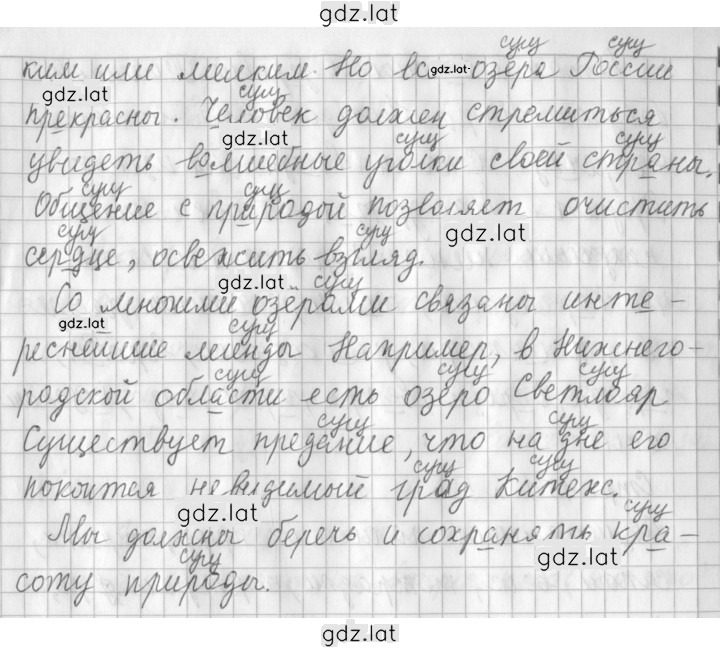 gdz.lat
сущ сущ
ким или мелким. Но все озёра России
gdz.lat
gdz.lat сущ
прекрасны. Человек должен стремиться
gdz.lat сущ сущ
увидеть волшебные уголки своей страны.
сущ сущ
Общение с природой позволяет очистить
сущ сущ gdz.lat
сердце, освежить взгляд.
gdz.lat сущ
Со многими озёрами связаны инте-
gdz.lat сущ
реснейшие легенды Например, в Нижнего-
сущ сущ сущ
родской области есть озеро Светлояр
сущ сущ
Существует предание, что на дне его
сущ сущ
покоится невидимый град Китеж.
gdz.lat сущ
Мы должны беречь и сохранять кра-
сущ gdz.lat
соту природы.
gdz.lat